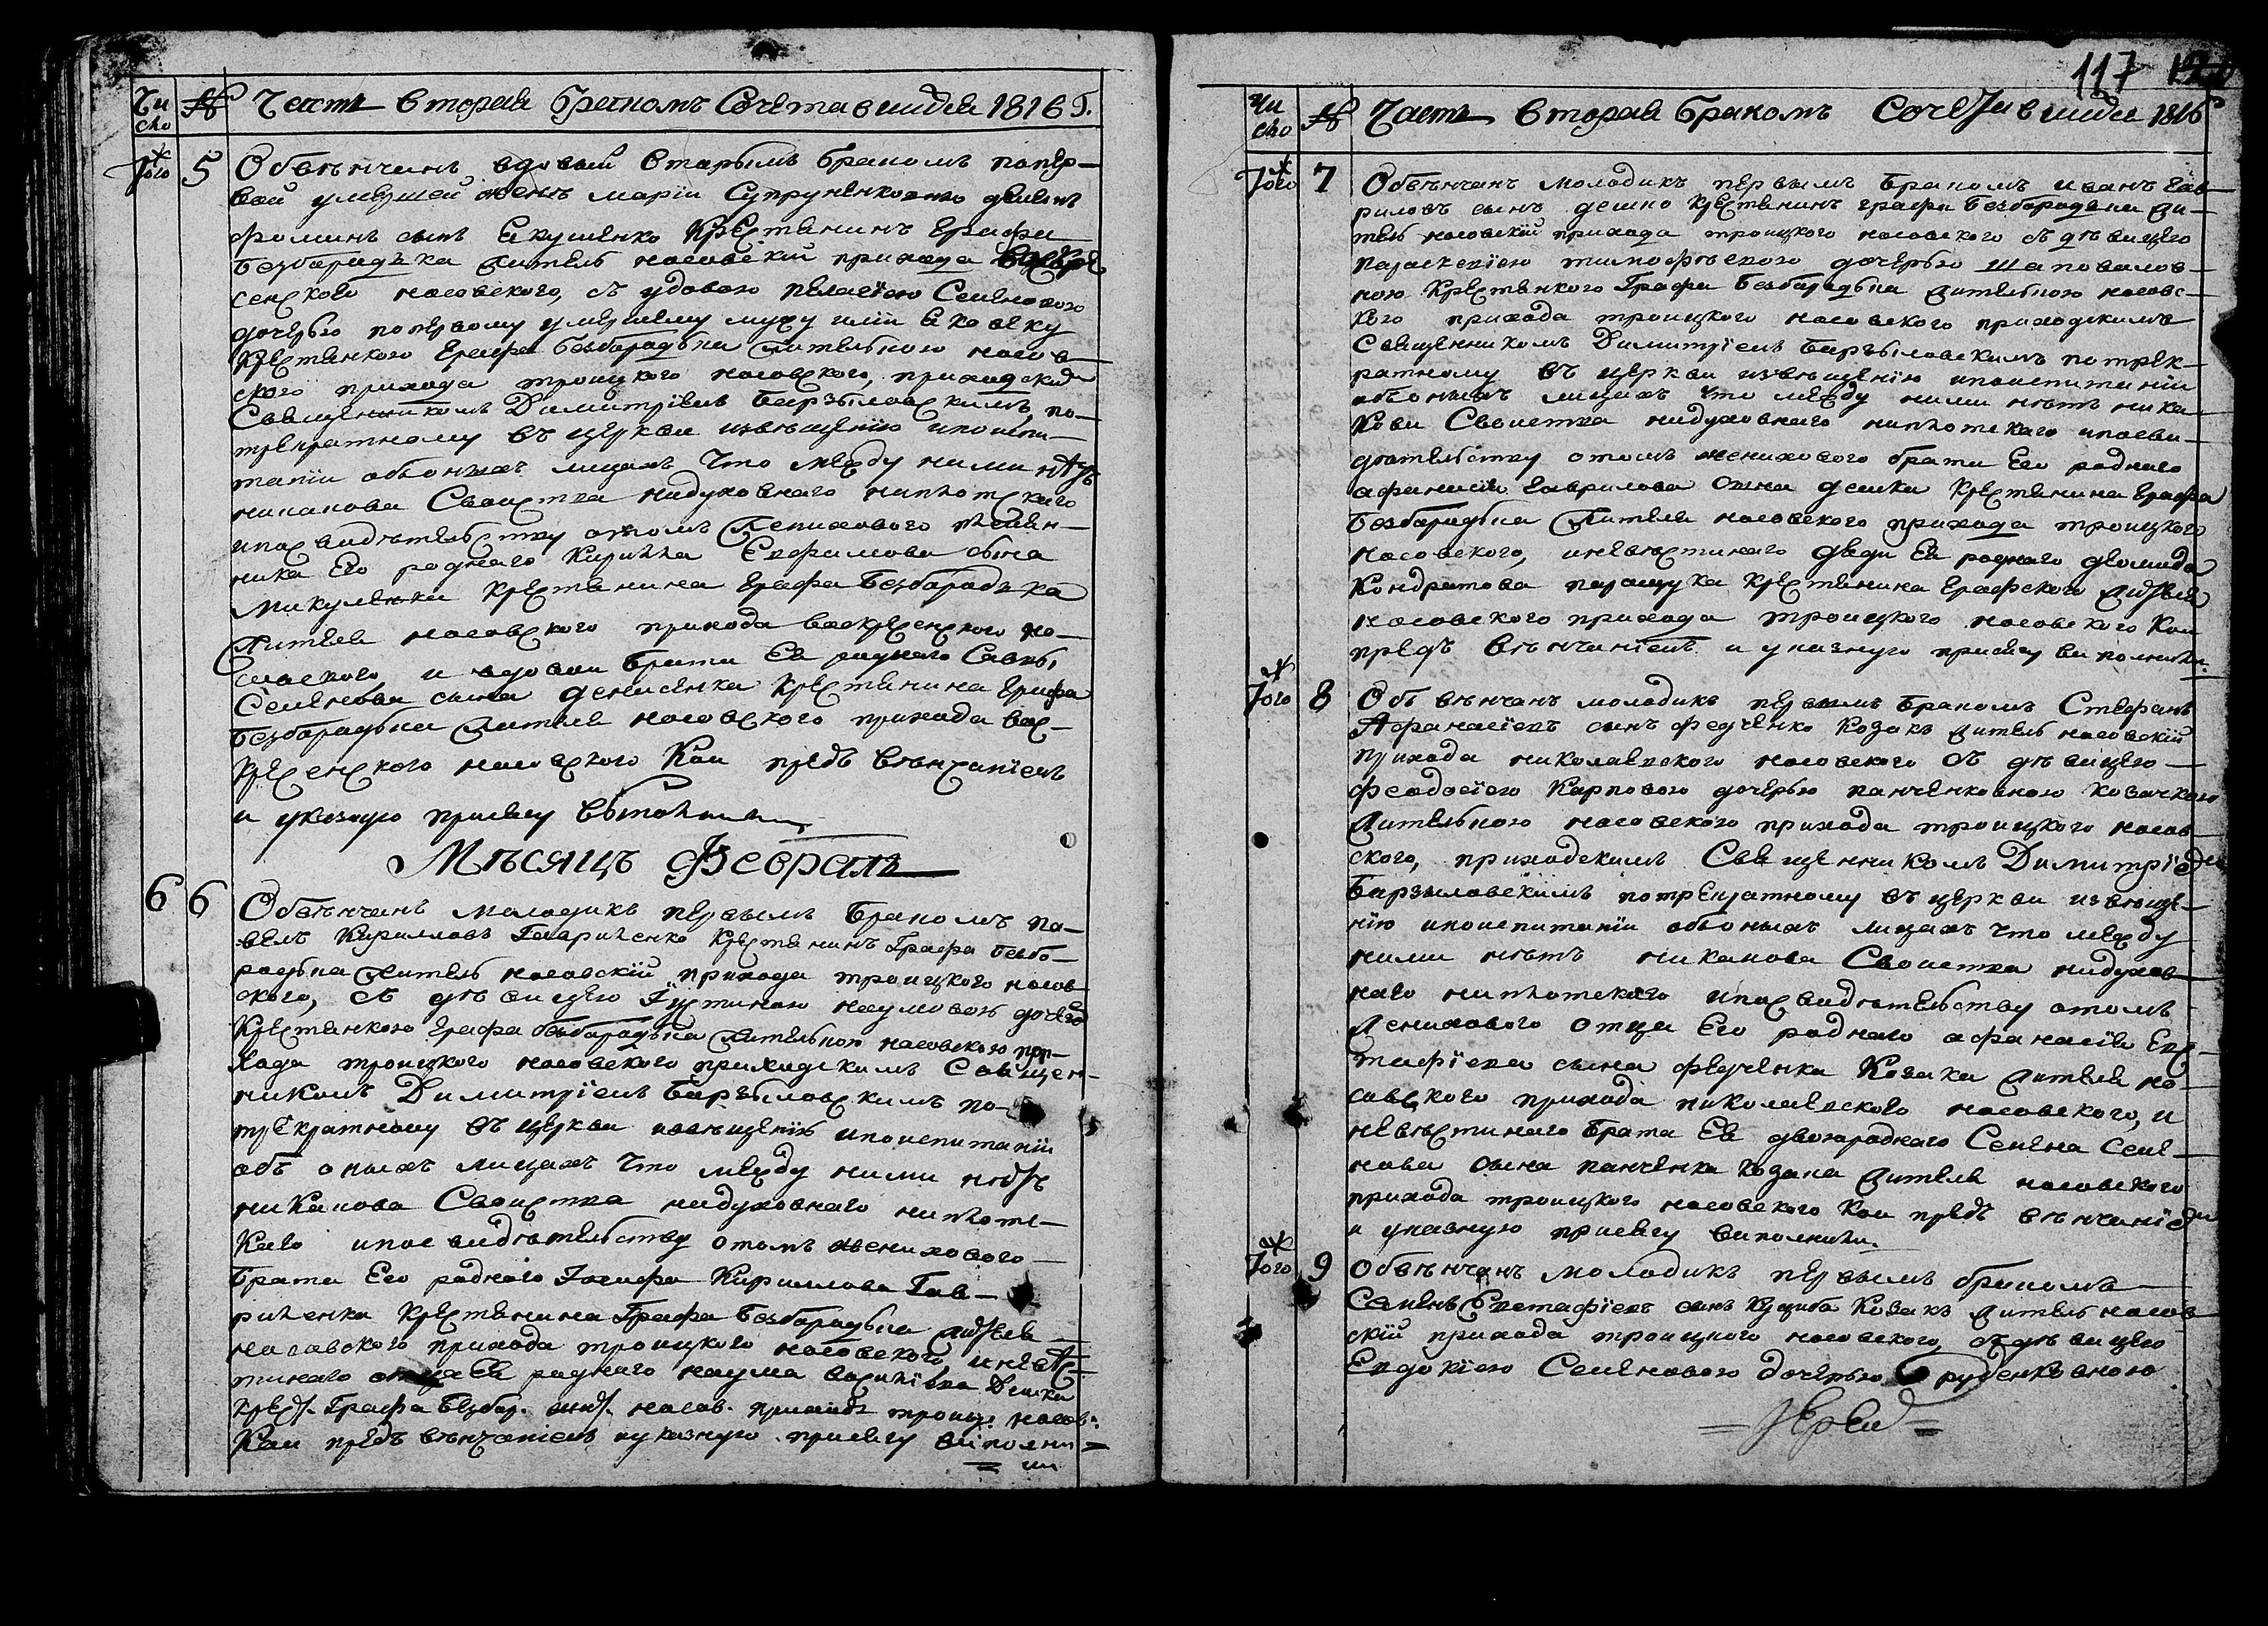 Чи
сло
№
Часть вторая бракомъ Сочетавшихся 1816 г.
Тогоже
5
Обвѣнчанъ вдовый вторымъ бракомъ по пер-
вой умершей женѣ Маріи Супруненковнѣ
фоминъ сынъ Якушенко Крестянинъ Графа
Безбородька житель носовскій прихода
сенского носовского, съ удовою Пелагіею Семеновою
дочерью по первому умершему мужу
Крестянкою Графа безбородька жителькою носов-
ского прихода троицкого носовского, приходским
Священникомъ Димитріемъ Барзыловскимъ, по
трекратному въ церкви извѣщенію и по испи-
таніи обѣ онихъ лицахъ что между ними нѣтъ
никакова Своиства нидуховнаго ниплотскаго
и по свидѣтельству о томъ Женихового племян-
ника Его роднаго Кирилла Ефимова сына
Микуленка Крестянина Графа Безбородька
Жителя носовского прихода воскресенского но-
совского, и вдовои брата Ея роднаго Саввы
Семенова сына Денисенка Крестянина Графа
безбородька жителя носовского прихода вос-
кресенского носовского Кои предъ вѣнчаніемъ
и указную присягу выполнили
Мѣсяцъ Февраль
6
6
Обвѣнчанъ молодикъ первымъ бракомъ Па-
велъ Кирилловъ Гавриленко Крестянинъ Графа безбо-
родька житель носовскій прихода троицкого носов-
ского, съ дѣвицею Густиною Наумовою дочерю
Крестянкою Графа безбородька жителькою носовскою при-
хода троицкого носовского приходскимъ Священ-
никомъ Димитріемъ Барзыловскимъ по
трекратному въ церкви извѣщенію и по испитаніи
объ онихъ лицахъ что между ними нѣтъ
никакова Своиства нидуховнаго ниплотс-
каго и по свидѣтельству о томъ женихового
брата Его роднаго Іосифа Кириллова Гав-
риленка Крестянина Графа безбородька жителя
носовского прихода троицкого носовского, и невѣс-
тинаго отца Ея роднаго Наума Василіева Дешка
Крест. Графа безбор. жит. носов. прихода троиц. носов.
Кои предъ вѣнчаніемъ и указную присягу виполни-
ли
117
Чи
сло
№
Часть вторая бракомъ Сочетавшихся 1816
Тогоже
7
Обвѣнчанъ молодикъ первымъ бракомъ Иванъ Гав-
риловъ сынъ Дешко Крестянинъ Графа безбородька жи-
тель носовскій прихода троицкого носовского съ дѣвицею
Параскевіею Тимофѣевою дочерью Шаповалов-
ною Крестянкою Графа безбородька жителькою носовс-
кого прихода троицкого носовского приходскимъ
Священникомъ Димитріемъ Барзыловскимъ по трек-
ратному въ церкви извѣщенію и по испитаніи
обѣ онихъ лицахъ что между ними нѣтъ ника-
кова Своиства нидуховнаго ниплотскаго и по сви-
дѣтельству о томъ женихового брата Его роднаго
Афанасія Гаврилова сына Дешка Крестянина Графа
Безбородька Жителя носовского прихода троицкого
носовского, и невѣстинаго дяди Ея роднаго Деомида
Кондратова Паращука Крестянина Графского жителя
носовского прихода троицкого носовского Кои
предъ вѣнчаніемъ и указную присягу виполнили.
Тогоже
8
Обвѣнчанъ молодикъ первымъ бракомъ Стефанъ
Афанасіевъ сынъ Федченко Козакъ житель носовскій
прихода николаевского носовского съ дѣвицею
Феодосіею Карповою дочерью Панченковною Козачкою
Жителькою носовского прихода троицкого носов-
ского, приходскимъ Священникомъ Димитріемъ
Барзыловскимъ по трекратному въ церкви извѣще-
нію и по испитаніи обѣ онихъ лицахъ что между
ними нѣтъ никакова Своиства нидухов-
наго ниплотскаго и по свидѣтельству о томъ
Женихового отца Его роднаго Афанасія Евс-
тафіева сына Федченка Козака жителя но-
совского прихода николаевского носовского, и
невѣстинаго брата Ея двоюродного Семена Семе-
нова сына Панченка Козака жителя носовского
прихода троицкого носовского Кои предъ вѣнчаніем
и указную присягу виполнили.
Тогоже
9
Обвѣнчанъ молодикъ первымъ бракомъ
Семенъ Евстафіевъ сынъ Куциба Козакъ житель носов-
скій прихода троицкого носовского, съ дѣвицею
Евдокіею Семеновою дочерью Пруденковною
Іерей